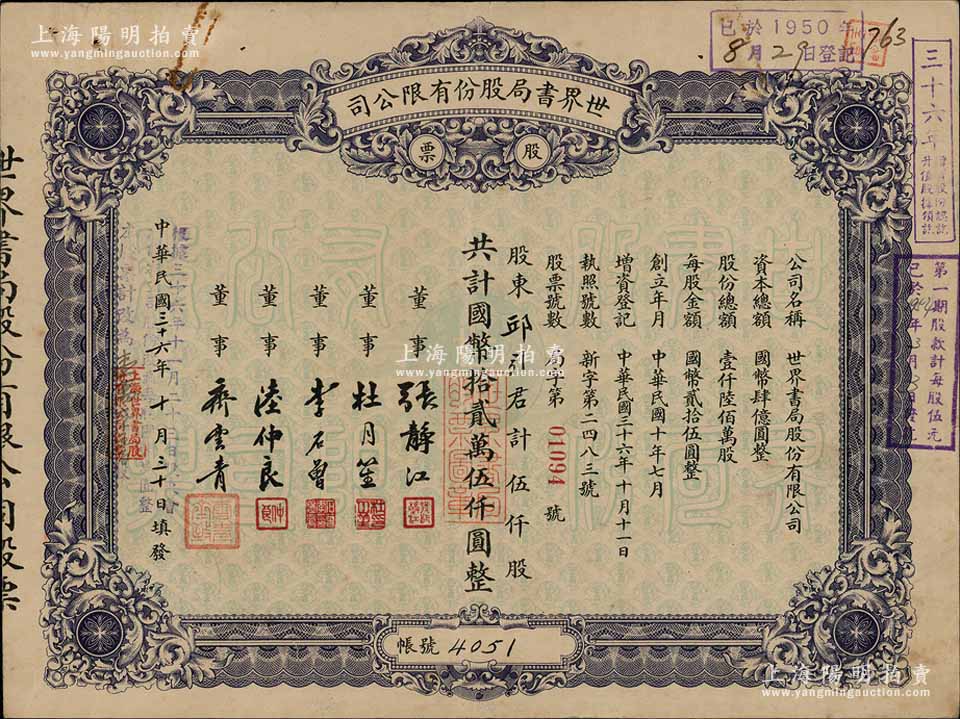 上海陽明拍賣
www.yangmingauction.com
已於1950年
8月29日登記
763
三十六年
世界書局股份有限公司
股票
第一期股款計每股伍元
公司名稱 世界書局股份有限公司
資本總額 國幣肆億圓整
股份總額 壹仟陸佰萬股
每股金額 國幣貳拾伍圓整
創立年月 中華民國十年七月
增資登記 中華民國三十六年十月十一日
執照號數 新字第二四八三號
股票號數 局字第 01094 號
股東 邱 君計伍仟股
共計國幣拾貳萬伍仟圓整
董事 張靜江
董事 杜月笙
董事 李石曾
董事 陸仲良
董事 齊雲青
中華民國三十六年十月三十日填發
帳號 4051
世界書局股份有限公司股票
上海陽明拍賣
www.yangmingauction.com
上海陽明拍賣
www.yangmingauction.com